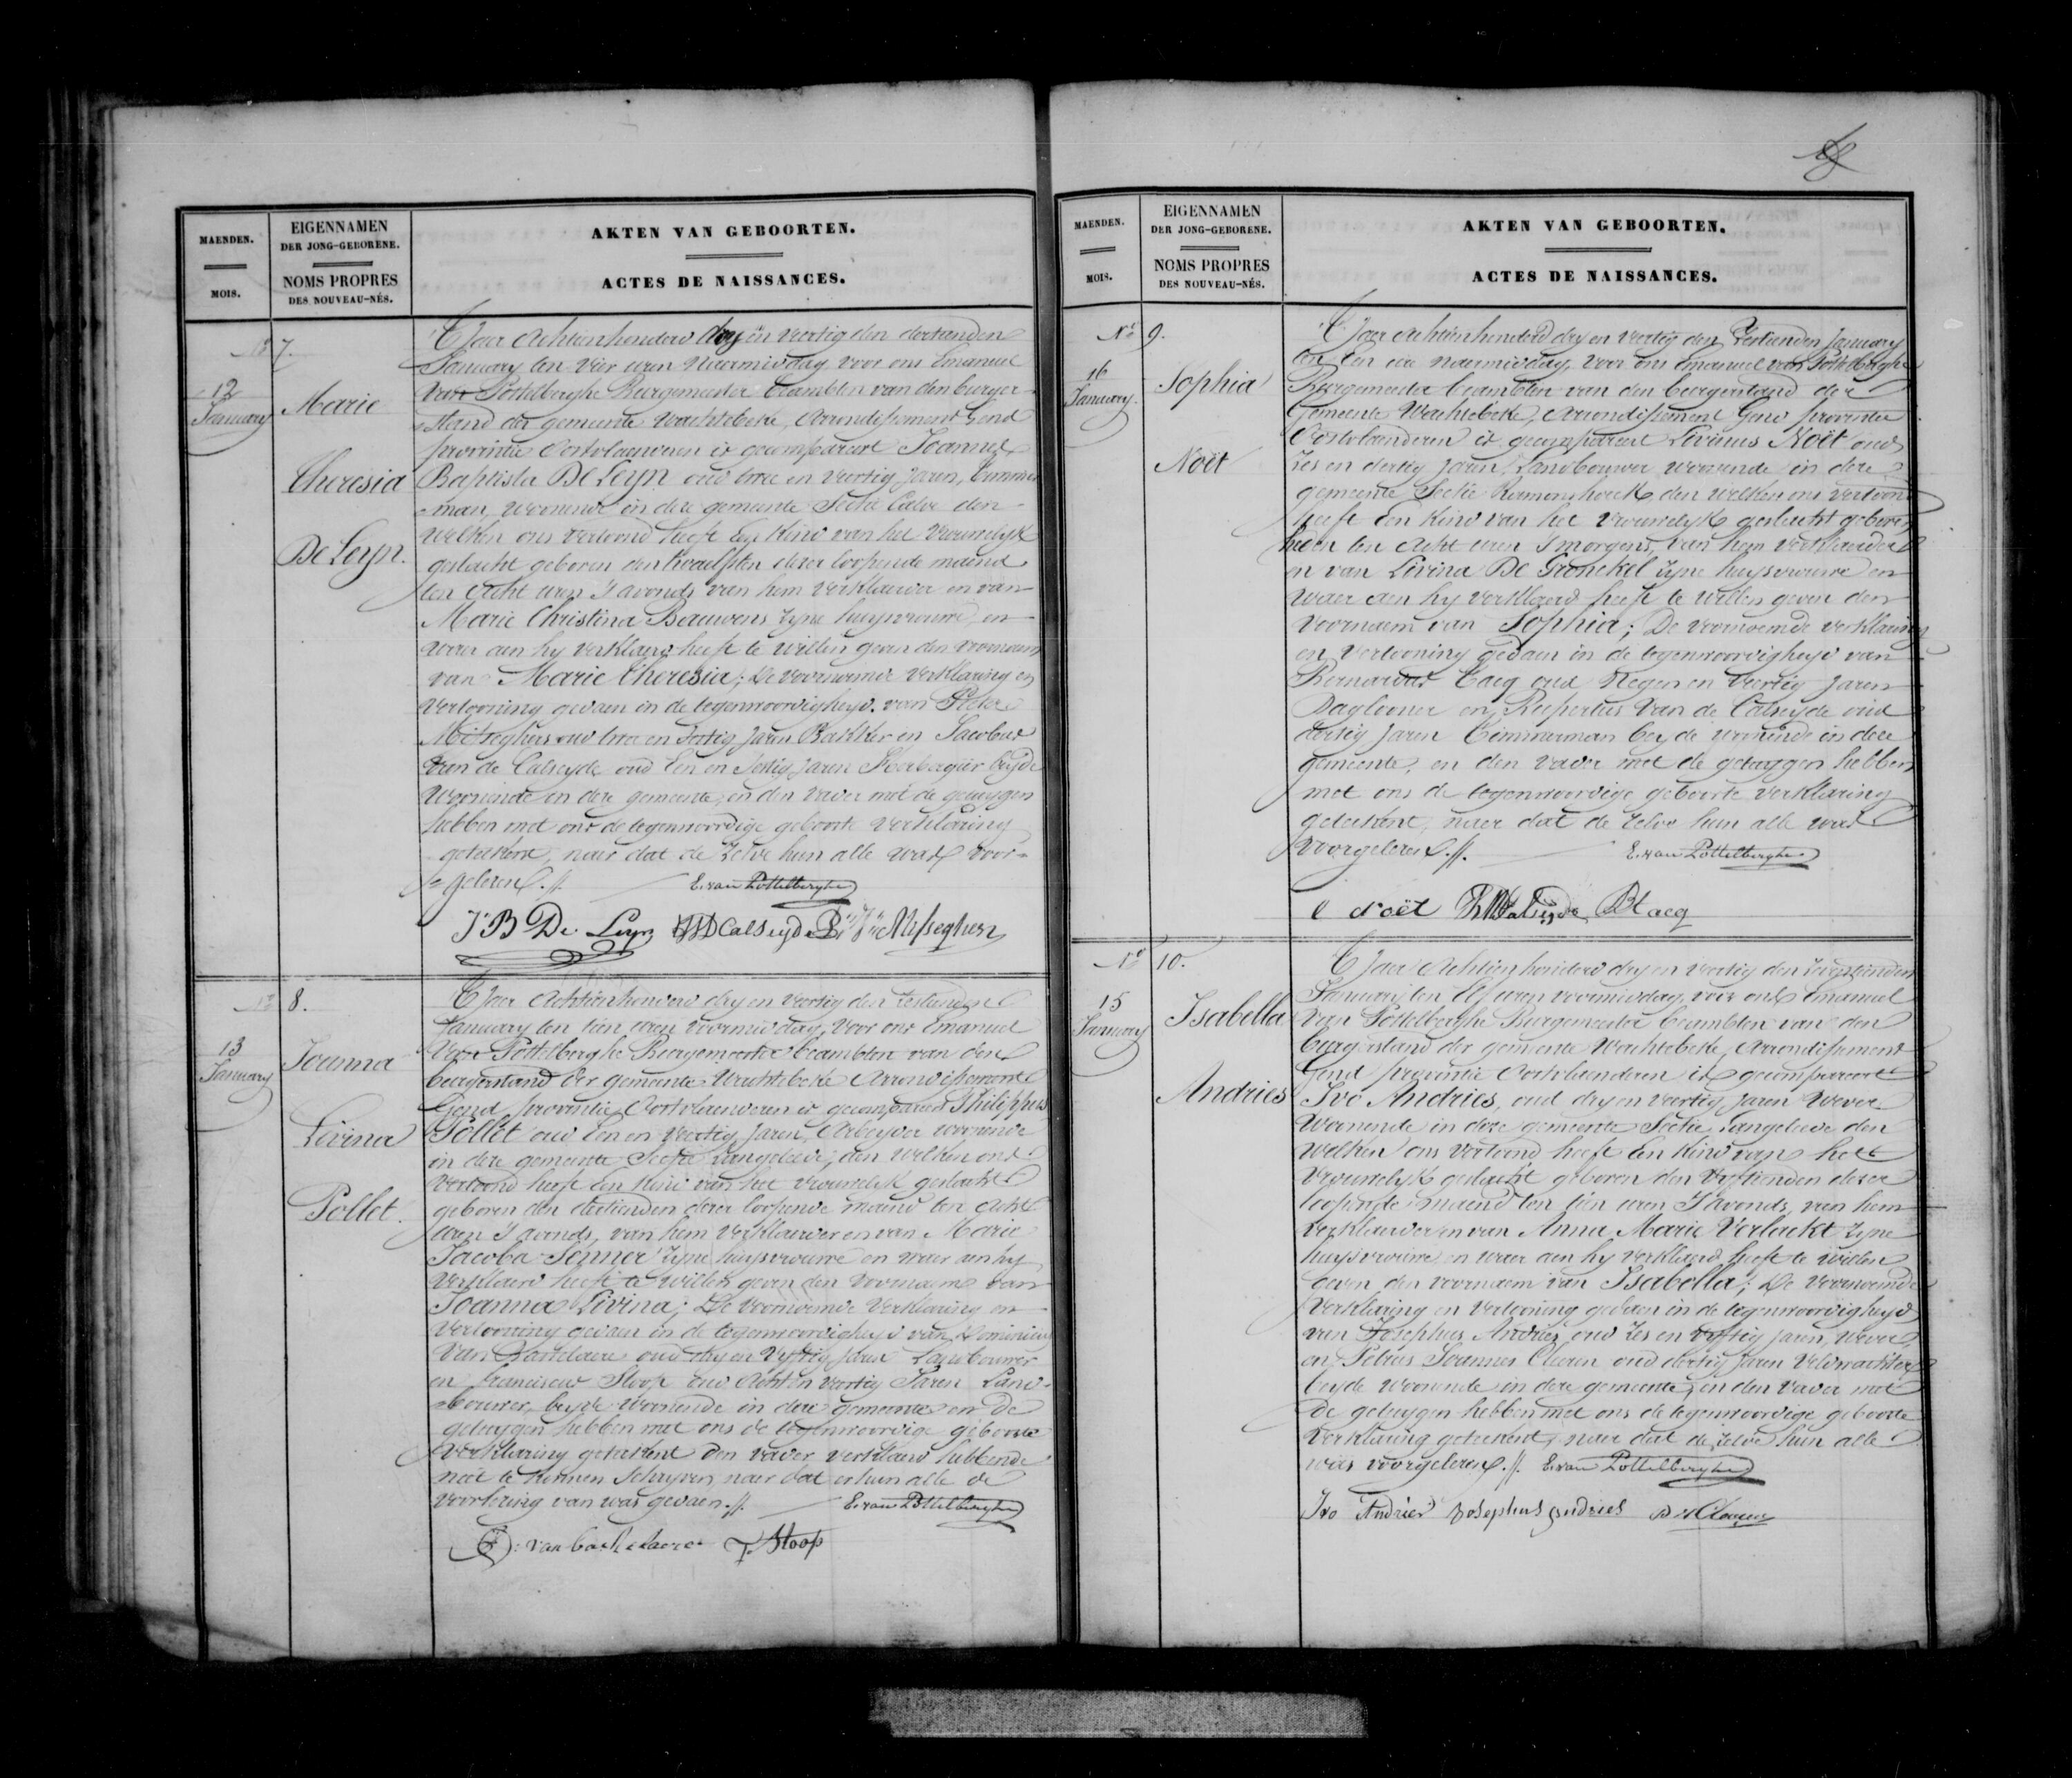 MAENDEN.
MOIS.
EIGENNAMEN
DER JONG-GEBORENE.
NOMS PROPRES
DES NOUVEAU-NÉS.
AKTEN VAN GEBOORTEN.
ACTES DE NAISSANCES.
N° 7.
12
January
Marie
Theresia
De Leyn.
T Jaer Achtienhonderd dry en veertig den dertienden
January ten vier uren Naermiddag voor ons Emanuel
Van Pottelberghe Burgemeester beambten van den burger-
stand der gemeente Wachtebeke, Arrondissement Gend
provintie Oostvlaenderen is gecompareert Joannes
Baptista De Leyn oud twee en veertig Jaren, Timmer-
man, woonende in deze gemeente Sectie Calve den
welken ons vertoond heeft Een Kind van het Vrouwelyk
geslacht geboren den twaelfsten dezer loopende maend
ten Acht uren S'avonds van hem Verklaerder en van
Marie Christina Bauwens zyne huysvrouwe, en
waer aen hy verklaerd heeft te willen geven den voornaem
van Marie Theresia; De voornoemde Verklaring en
Vertooning gedaen in de tegenwoordigheyd van Pieter
Misseghers oud twee en Jaren Bakker en Jacobus
Van de Calseyde oud Een en Jaren Herbergier beyde
Woonende in deze gemeente, en den Vader met de getuygen
hebben met ons de tegenwoordige geboorte Verklaring
geteekend, naer dat de Zelve hun alle was voor-
gelezen.//. E. van Pottelberghe
J B De Leyn Calseyde Misseghers
8.
13
January
Joanna
Livina
Pollet.
T Jaer Achtienhonderd dry en veertig den zestienden
January ten tien uren voormiddag, voor ons Emanuel
Van Pottelberghe Burgemeester beambten van den
burgerstand der gemeente Wachtebeke Arrondissement
Gend provintie Oostvlaenderen is gecompareert Philippus
Pollet oud Een en veertig Jaren, Arbeyder woonende
in deze gemeente Sectie Langeleede, den welken ons
Vertoond heeft Een Kind van het vrouwelyk geslacht
geboren den dertienden dezer loopende maend ten Acht
uren S'avonds, van hem Verklaerder en van Marie
Jacoba Senner zyne huysvrouwe en waer aen hy
Verklaerd heeft te willen geven den voornaem van
Joanna Livina; De voornoemde Verklaring en
Vertooning gedaen in de tegenwoordigheyd van
Van oud dry en Vyftig Jaren Landbouwer
en Franciscus Stoop oud Acht en veertig Jaren Land-
bouwer, beyde woonende in deze gemeente en De
getuygen hebben met ons de tegenwoordige geboorte
Verklaring geteekend den vader verklaerd hebbende
niet te Konnen Schryven, naer dat er hun alle de
Voorlezing van was gedaen.//. E. van Pottelberghe
F. Stoop
MAENDEN.
MOIS.
EIGENNAMEN
DER JONG-GEBORENE.
NOMS PROPRES
DES NOUVEAU-NÉS.
AKTEN VAN GEBOORTEN.
ACTES DE NAISSANCES.
N° 9.
16
January.
Sophia
Noët
T Jaer Achtienhonderd dry en veertig den Zestienden January
ten Een ure naermiddag, voor ons Emanuel van Pottelberghe
Burgemeester beambten van den burgerstand der
Gemeente Wachtebeke, Arrondissement Gend provintie
Oostvlaenderen is gecompareert Livinus Noët oud
Zes en dertig Jaren, Landbouwer woonende in deze
gemeente Sectie den welken ons vertoond
heeft Een Kind van het Vrouwelyk geslacht geboren
heden ten Acht uren S'morgens, van hem verklaerder
en van Livina De Gronckel zyne huysvrouwe en
waer aen hy verklaerd heeft te willen geven den
Voornaem van Sophia; De voornoemde verklaring
en Vertooning gedaen in de tegenwoordigheyd van
Bernardus Tacq oud Negen en Veertig Jaren
Daglooner en Rupertus Van de Calseyde oud
dertig Jaren Timmerman beyde woonende in deze
gemeente, en den Vader met de getuygen hebben
met ons de tegenwoordige geboorte Verklaring
geteekend, naer dat de zelve hun alle was
Voorgelezen.//. E. van Pottelberghe
B Tacq
N° 10.
15
January
Isabella
Andries
T Jaer Achtien honderd dry en Veertig den zeventienden
January ten Elf uren voormiddag, voor ons Emanuel
Van Pottelberghe Burgemeester beambten van den
burgerstand der gemeente Wachtebeke, Arrondissement
Gend provintie Oostvlaenderen is gecompareert
Ivo Andries, oud dry en Veertig Jaren Wever
Woonende in deze gemeente Sectie Langeleede den
Welken ons Vertoond heeft Een Kind van het
Vrouwelyk geslacht geboren den Vyftienden dezer
loopende maend ten tien uren S'avonds, van hem
Verklaerder en van Anna Marie Verlaekt zyne
huysvrouwe en waer aen hy verklaerd heeft te willen
geven den voornaem van Isabella; De voornoemde
Verklaring en Vertooning gedaen in de tegenwoordigheyd
van Josephus Andries oud Zes en Vyftig Jaren, Wever,
en Petrus Joannes oud dertig Jaren Veldwachter,
beyde woonende in deze gemeente, en den Vader met
De getuygen hebben met ons de tegenwoordige geboorte
Verklaring geteekend, naer dat de zelve hun alle
was voorgelezen.//. E. van Pottelberghe
Ivo Andries Josephus Andries